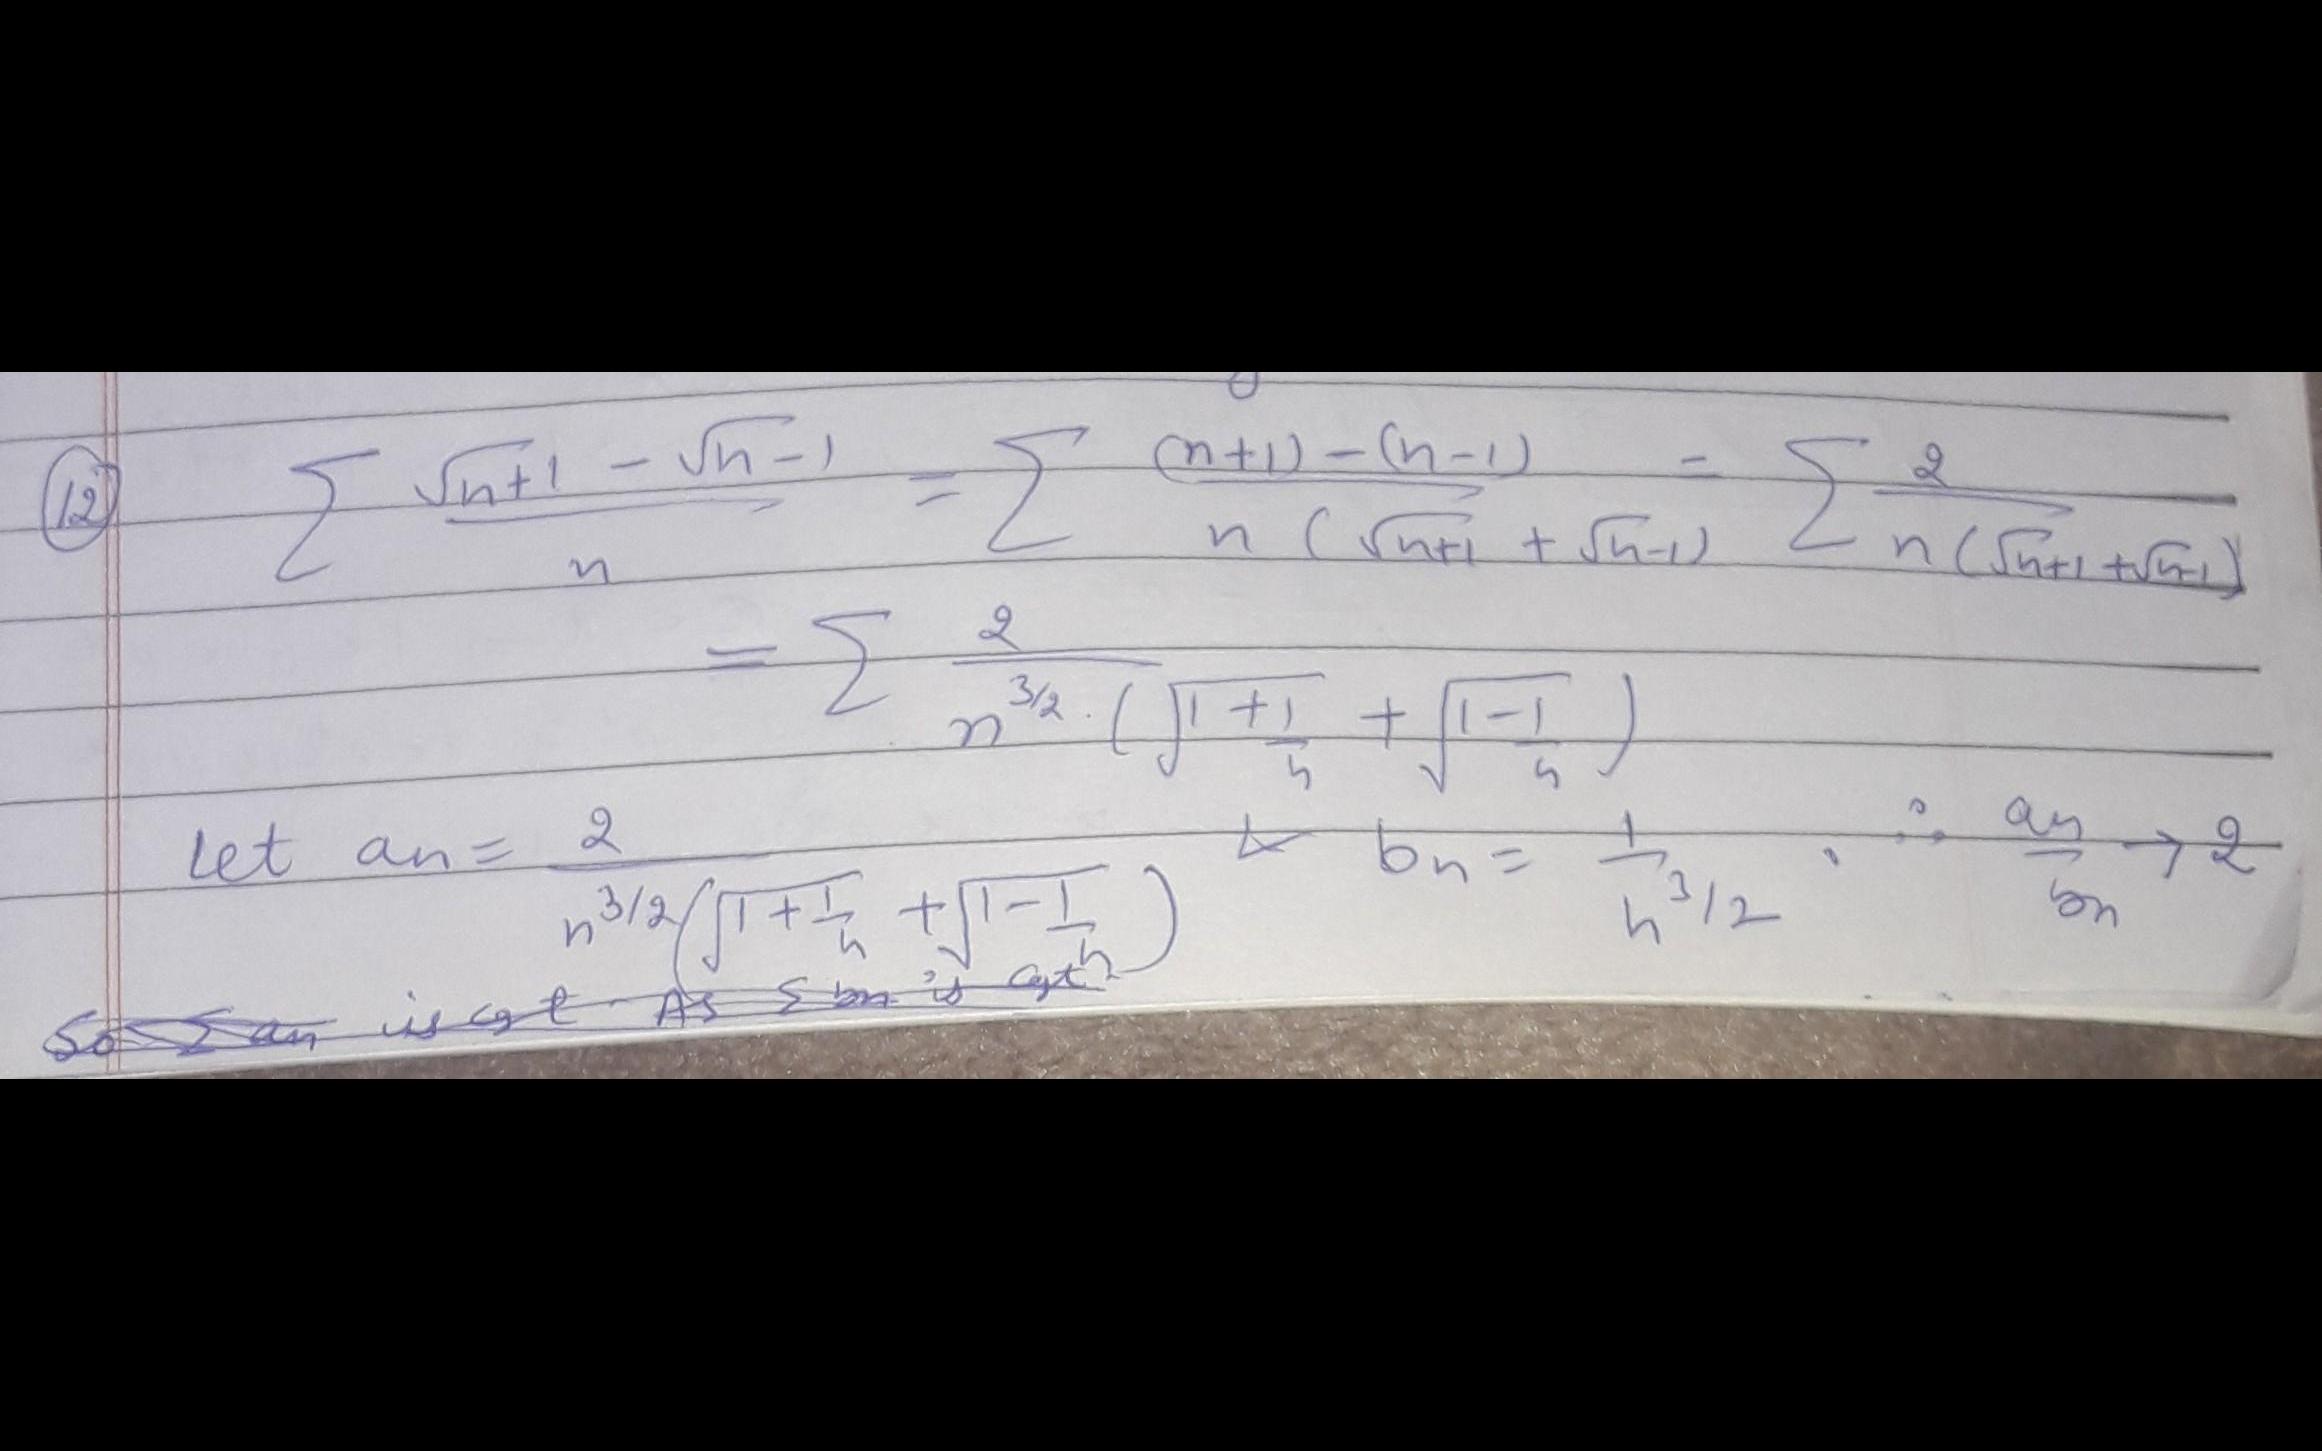 (12) ∑ (√n+1 − √n−1)/n = ∑ ((n+1) − (n−1))/(n (√n+1 + √n−1)) = ∑ 2/(n (√n+1 + √n−1))
= ∑ 2/(n^3/2 . (√(1+1/n) + √(1−1/n)))
Let an = 2/(n^3/2 (√(1+1/n) + √(1−1/n))) & bn = 1/n^3/2 . ∴ an/bn → 2
So ∑ an is cgt. As ∑ bn is cgt